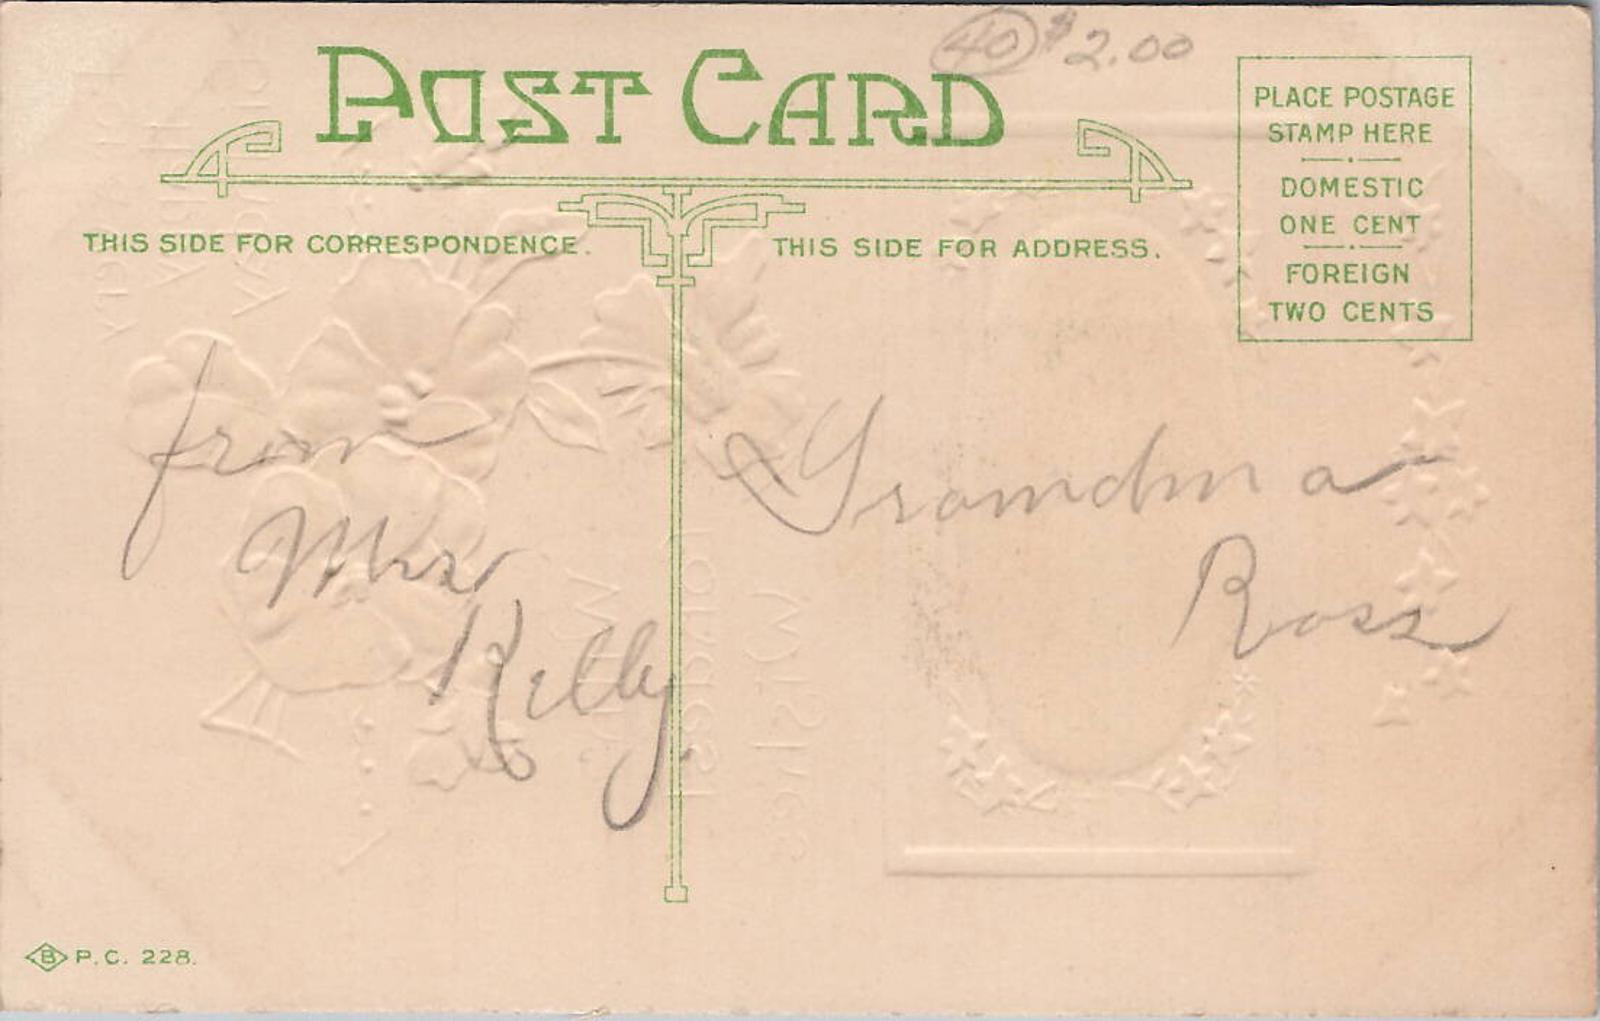 40 $2.00
POST CARD
PLACE POSTAGE
STAMP HERE
DOMESTIC
ONE CENT
FOREIGN
TWO CENTS
THIS SIDE FOR CORRESPONDENCE.
THIS SIDE FOR ADDRESS.
from
Mrs
Kelly
Grandma
Ross
B P.C. 228.